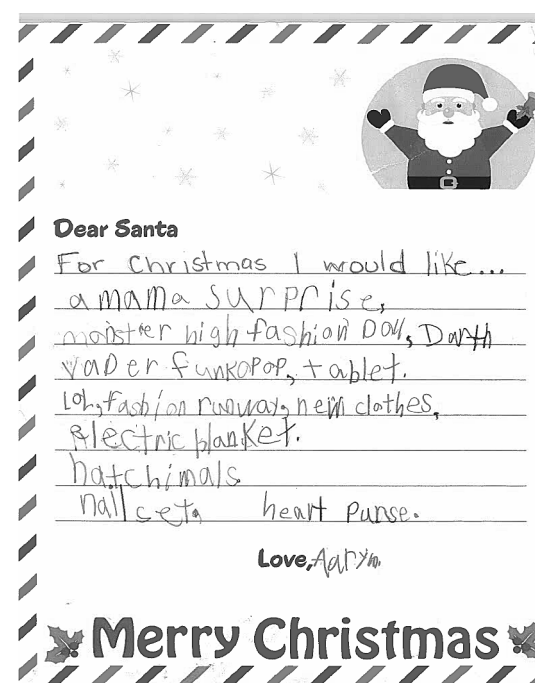 Dear Santa
For Christmas I would like...
a mama surprise,
monster high fashion Doll, Darth
vaDer funkoPoP, tablet.
lol, fashion runway, new clothes,
Electric planket.
hatchimals
nall set. heart purse.
Love, Aaryn.
Merry Christmas